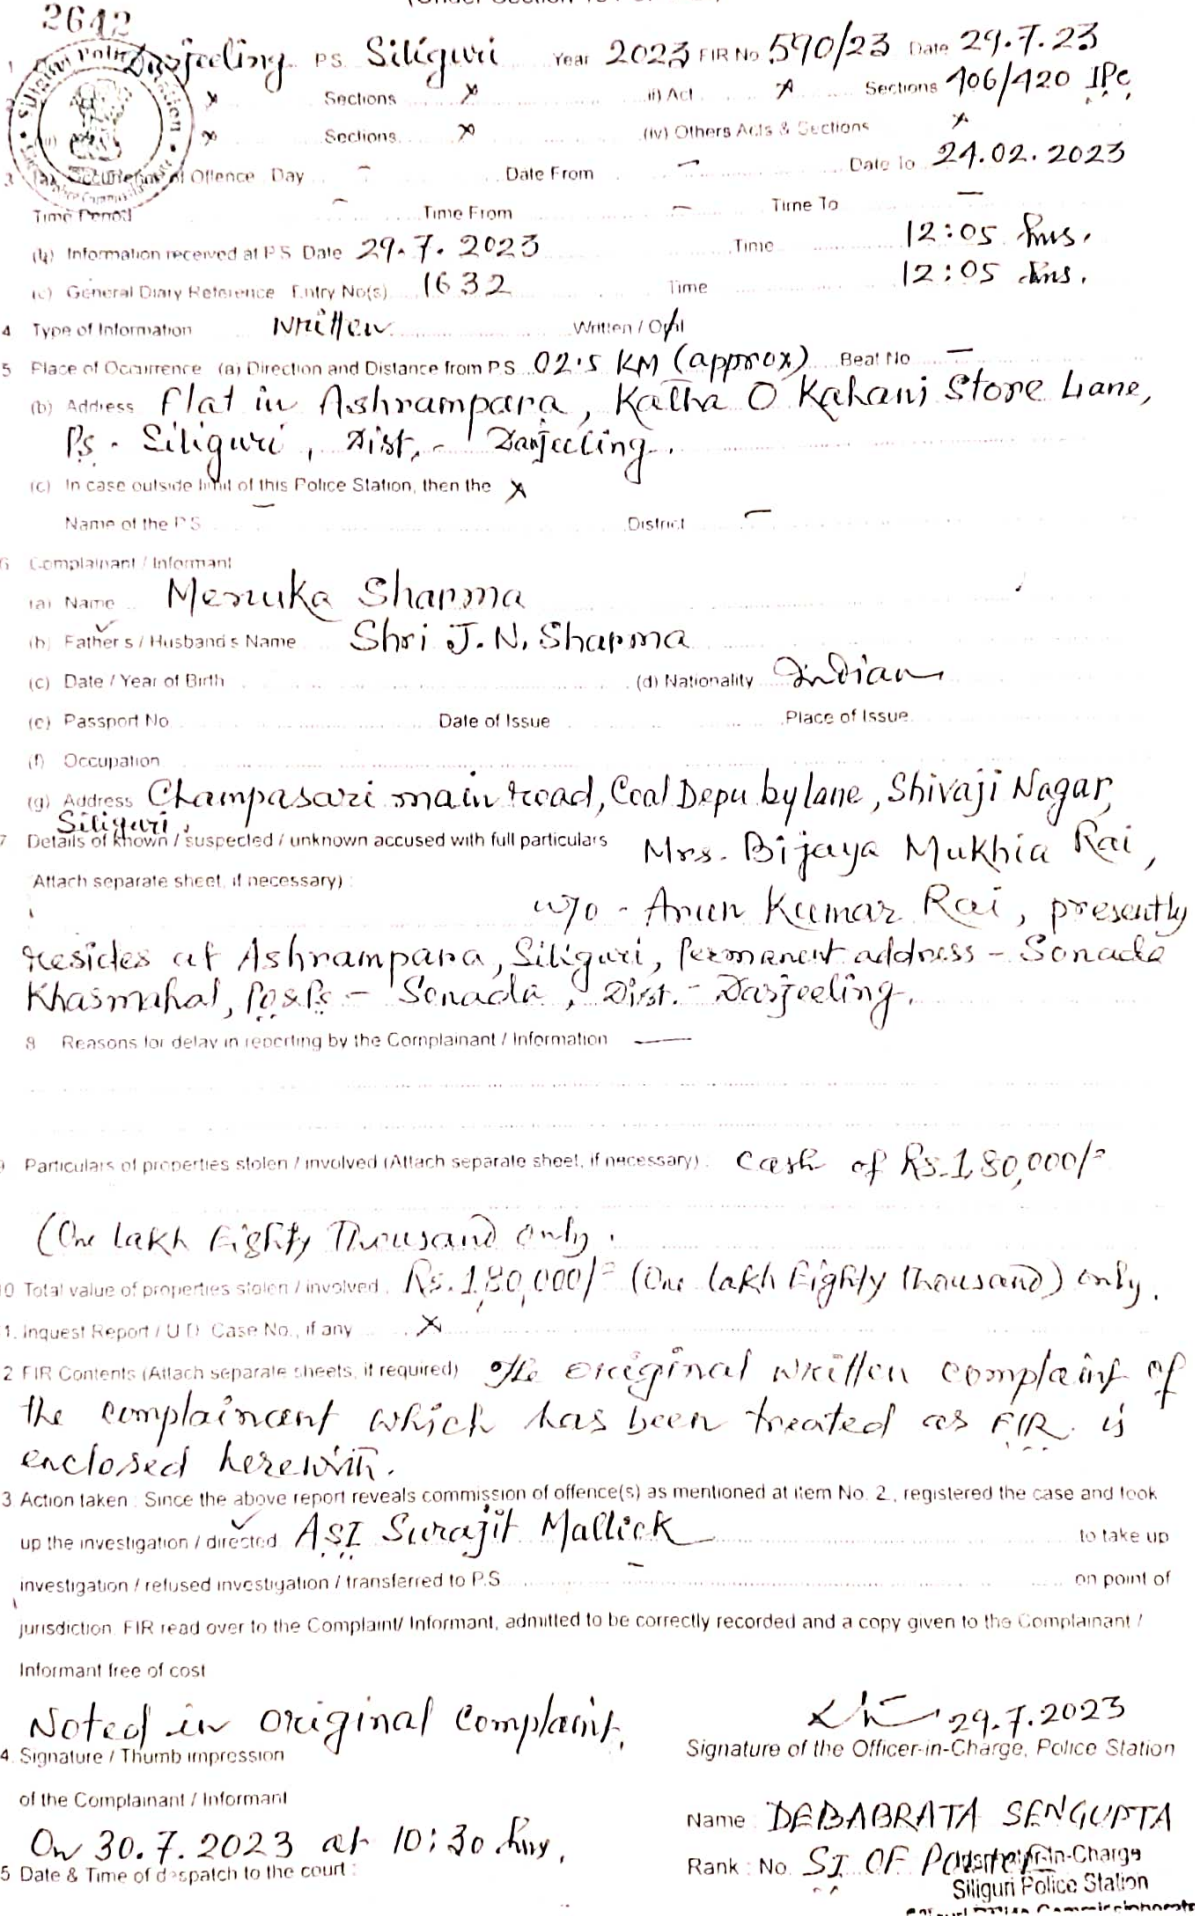 2642
Darjeeling P.S. Siliguri Year 2023 FIR No 590/23 Date 29.7.23
x Sections x ii) Act x Sections 406/420 IPC
x Sections x (iv) Others Acts & Sections x
3 (a) Occurrence of Offence Day – Date From – Date To 24.02.2023
Time Period – Time From – Time To –
(b) Information received at P.S. Date 29.7.2023 Time 12:05 hrs.
(c) General Diary Reference Entry No(s) 1632 Time 12:05 hrs.
4 Type of Information Written Written / Oral
5 Place of Occurrence (a) Direction and Distance from P.S 02.5 KM (approx) Beat No –
(b) Address Flat in Ashrampara, Katha O Kahani Store Lane,
Ps - Siliguri, Dist. - Darjeeling.
(c) In case outside limit of this Police Station, then the x
Name of the P.S – District –
6 Complainant / Informant
(a) Name Menuka Sharma
(b) Father's / Husband's Name Shri J.N. Sharma
(c) Date / Year of Birth (d) Nationality Indian
(e) Passport No Date of Issue Place of Issue
(f) Occupation
(g) Address Champasari main road, Coal Depu bylane, Shivaji Nagar,
Siliguri.
7 Details of known / suspected / unknown accused with full particulars Mrs. Bijaya Mukhia Rai,
Attach separate sheet, if necessary) :
w/o - Arun Kumar Rai, presently
resides at Ashrampara, Siliguri, Permanent address - Sonada
Khasmahal, Po&Ps - Sonada, Dist. - Darjeeling.
8 Reasons for delay in reporting by the Complainant / Information —
9 Particulars of properties stolen / involved (Attach separate sheet, if necessary) : Cash of Rs.1,80,000/=
(One lakh Eighty Thousand only.
10 Total value of properties stolen / involved . Rs.1,80,000/= (One lakh Eighty thousand) only.
1. Inquest Report / U.D. Case No., if any x
2 FIR Contents (Attach separate sheets, if required) The original written complaint of
the complainant which has been treated as FIR is
enclosed herewith.
3 Action taken : Since the above report reveals commission of offence(s) as mentioned at item No. 2., registered the case and took
up the investigation / directed ASI Surajit Mallick to take up
investigation / refused investigation / transferred to P.S – on point of
jurisdiction. FIR read over to the Complaint/ Informant, admitted to be correctly recorded and a copy given to the Complainant /
Informant free of cost
Noted in original complaint.
29.7.2023
4. Signature / Thumb impression Signature of the Officer-in-Charge, Police Station
of the Complainant / Informant
Name : DEBABRATA SENGUPTA
On 30.7.2023 at 10:30 hrs.
Rank : No. SI OF POLICE In-Charge
5 Date & Time of despatch to the court :
Siliguri Police Station